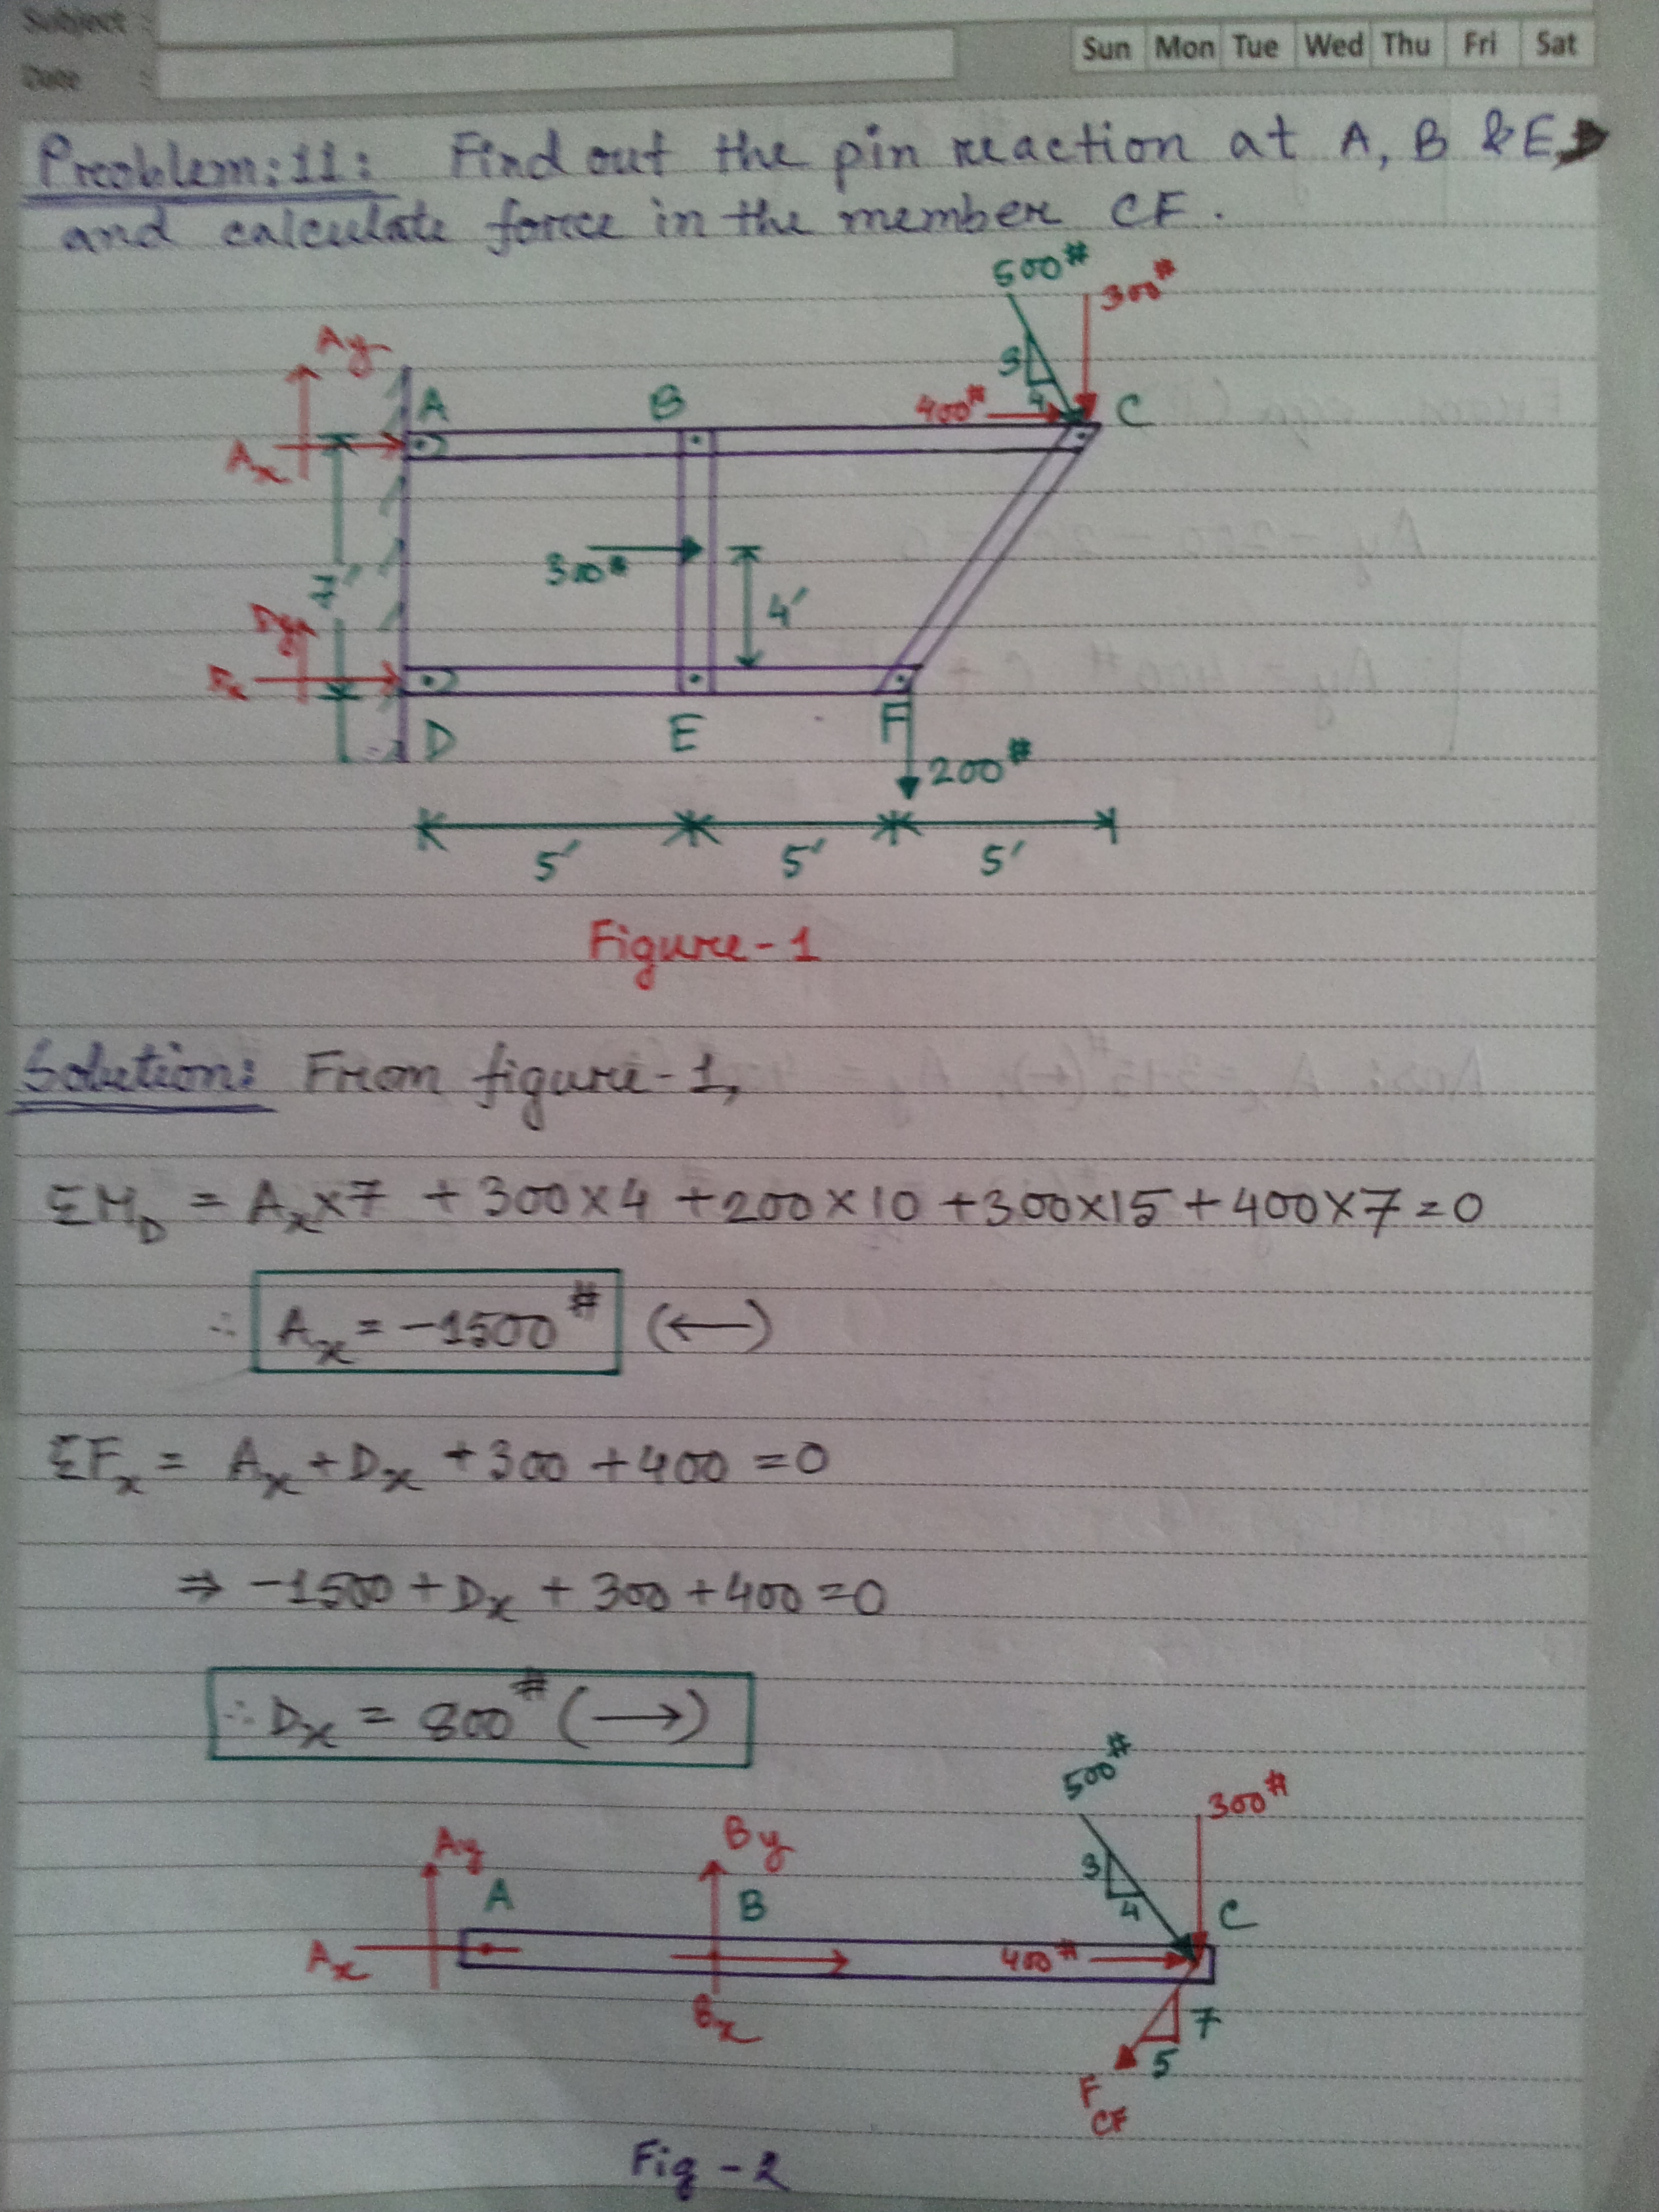 Subject :
Date :
Sun Mon Tue Wed Thu Fri Sat
Problem:11: Find out the pin reaction at A, B & E,
and calculate force in the member CF.
500#
300#
Ay
3
4
A
B
400#
C
Ax
300#
7'
4'
Dy
Dx
D
E
F
200#
5' 5' 5'
Figure-1
Solution: From figure-1,
ΣM_D = Ax×7 + 300×4 +200×10 +300×15 +400×7=0
∴ Ax = -1500# (←)
ΣFx = Ax + Dx +300 +400 =0
⇒ -1500 + Dx + 300 +400 =0
∴ Dx = 800# (→)
500#
300#
Ay
By
3
4
A
B
C
Ax
400#
Bx
7
5
F_CF
Fig - 2